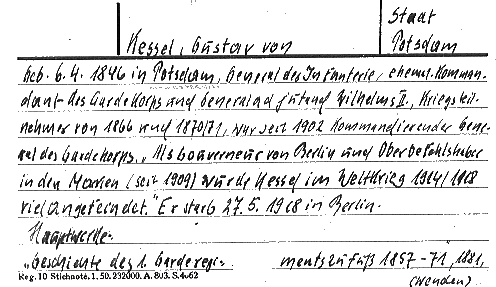 Staat
Kessel, Gustav von Potsdam
Geb. 6.4. 1846 in Potsdam, General der Infanterie, ehem. Komman-
dant des Gardekorps und Generaladjutant Wilhelms II., Kriegsteil-
nehmer von 1866 und 1870/71, war seit 1902 Kommandierender Gene-
ral des Gardekorps. „Als Gouverneur von Berlin und Oberbefehlshaber
in den Marken (seit 1909) wurde Kessel im Weltkrieg 1914/1918
viel angefeindet." Er starb 27.5. 1918 in Berlin.
Hauptwerke:
„Geschichte des 1. Garderegi- ments zu Fuß 1857-71", 1881,
Reg. 10 Stichnote. 1. 50. 232000. A. 803. S. 4×62 (wenden)